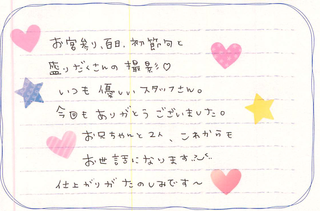 お宮参り、百日、初節句と
盛りだくさんの撮影♡
いつも優しいスタッフさん。
今回もありがとうございました。
お兄ちゃんと2人、これからも
お世話になります
仕上がりがたのしみです〜